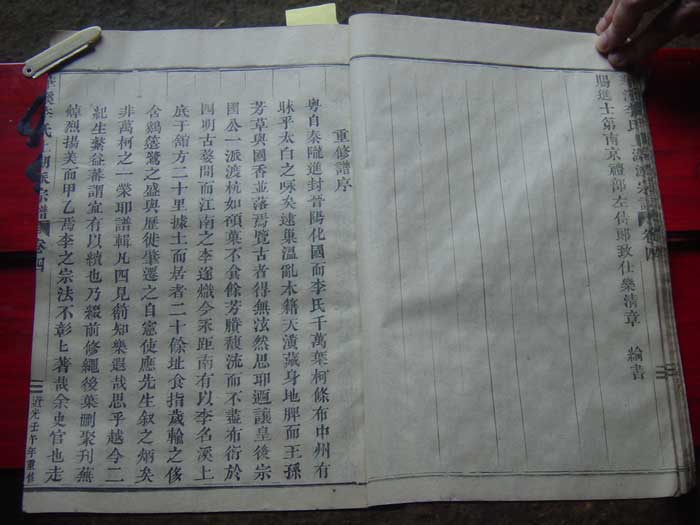 賜進士第南京禮部左侍郎致仕樂清章　綸書
重修譜序
粵自秦隴進封晉陽化國而李氏千萬葉柯條布中州有
昧乎太白之咏矣逮巢溫亂木籍天潢藏身地脾而王孫
芳草與國香並落焉覽古者得無泫然思耶迺讓皇後宗
國公一派渡杭如碩菓不食餘芳賸馥流而不盡布衍於
四明古婺間而江南之李遂熾今永距南有以李名溪上
底于舘方二十里據土而居者二十餘址食指歲輪之侈
舍鷄簉鷺之盛與歷徙肇遷之自憲使應先生叙之炳矣
非萬柯之一榮耶譜輯凡四見葥知樂遐哉思乎越今二
紀生繁益蕃謂宜有以續也乃綴前修繩後葉刪聚刋蕪
焯烈揚美而甲乙焉李之宗法不彰彰著哉余史官也走
溪李氏上湖派宗譜　卷四
道光壬午年重修